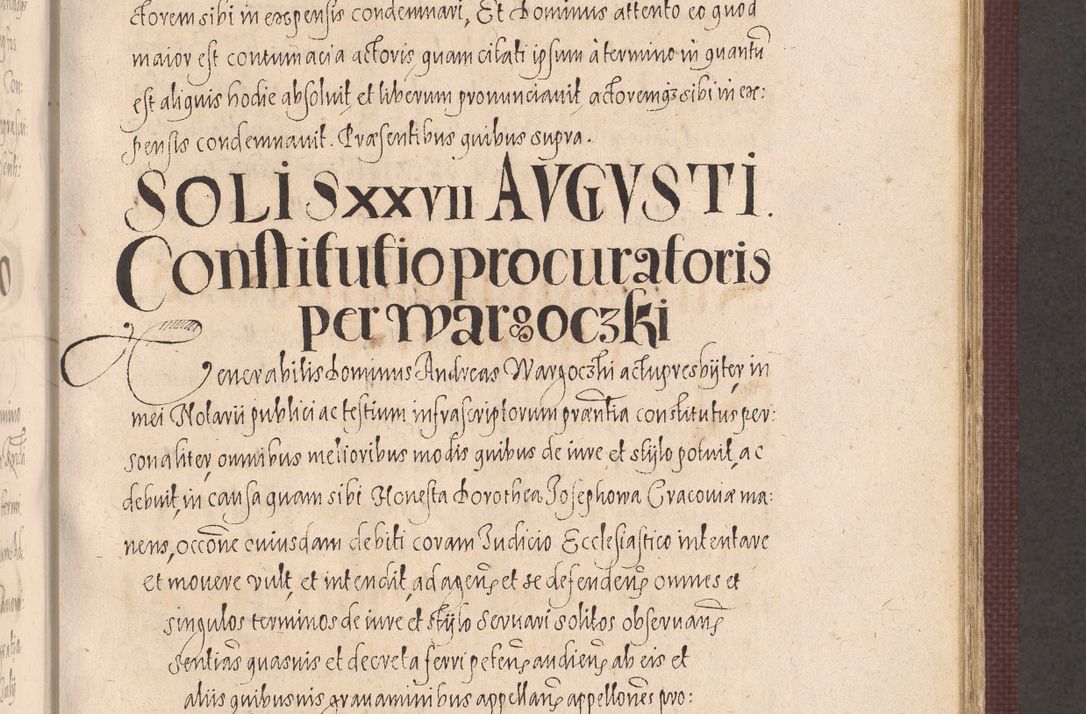 ctorem sibi in expensis condemnari, Et Dominus attento eo quod
maior est contumacia actoris quam citati ipsum à termino in quantū
est aliquis hodie absoluit et liberum pronunciauit actoremqꝫ sibi in ex:
pensis condemnauit. Præsentibus quibus supra.
SOLIS XXVII AVGVSTI.
Constitutio procuratoris
per Wargoczki
Venerabilis Dominus Andreas Wargoczki actu presbÿter in
mei Notarii publici ac testium infrascriptorum præntia constitutus per:
sonaliter, omnibus melioribus modis quibus de iure et stÿlo potuit, ac
debuit, in causa quam sibi Honesta Dorothea Josephowa Cracoviæ ma:
nens, occõne cuiusdam debiti coram Judicio Ecclesiastico intentare
et mouere vult, et intendit, ad agenꝭ et se defendenꝭ omnes et
singulos terminos de iure et stÿlo seruari solitos obseruanꝭ
sentias quasuis et decreta ferri petenꝭ audienꝭ ab eis et
aliis quibusuis grauaminibus appellanꝭ appellones pro: